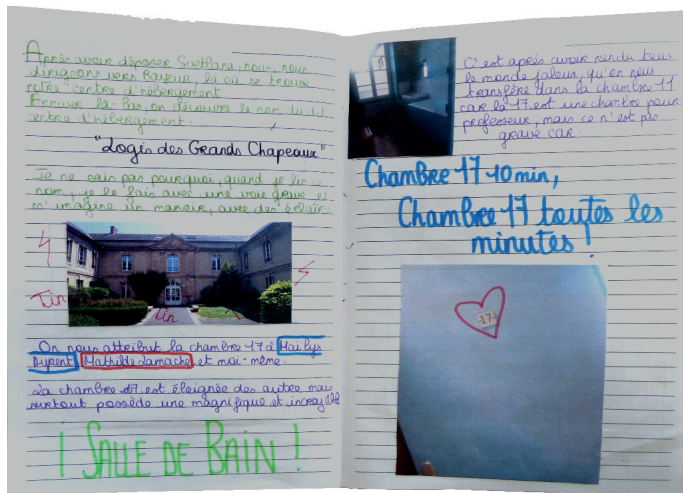 Après avoir déposer Svetlana, nous, nous
dirigeons vers Bayeux, là où se trouve
notre centre d'hébergement
Arriver là-bas, on découvre le nom du dit
centre d'hébergement.
"Logis des Grands Chapeaux"
Je ne sais pas pourquoi, quand je lis ce
nom, je le fais avec une voie grave et
m'imagine un manoir, avec des éclairs
Tin
Un
On nous attribut la chambre 17 à Maïlys
Mathilde Lamache et moi-même.
La chambre 17 est éloignée des autre mais
surtout possède une magnifique et incroyable
¡ SALLE DE BAIN !
C'est après avoir rendu tous
le monde jaloux, qu'on nous
transfère dans la chambre 11
car la 17 est une chambre pour
professeur, mais ce n'est pas
grave car.
Chambre 17 10 min,
Chambre 17 toutes les
minutes !
17